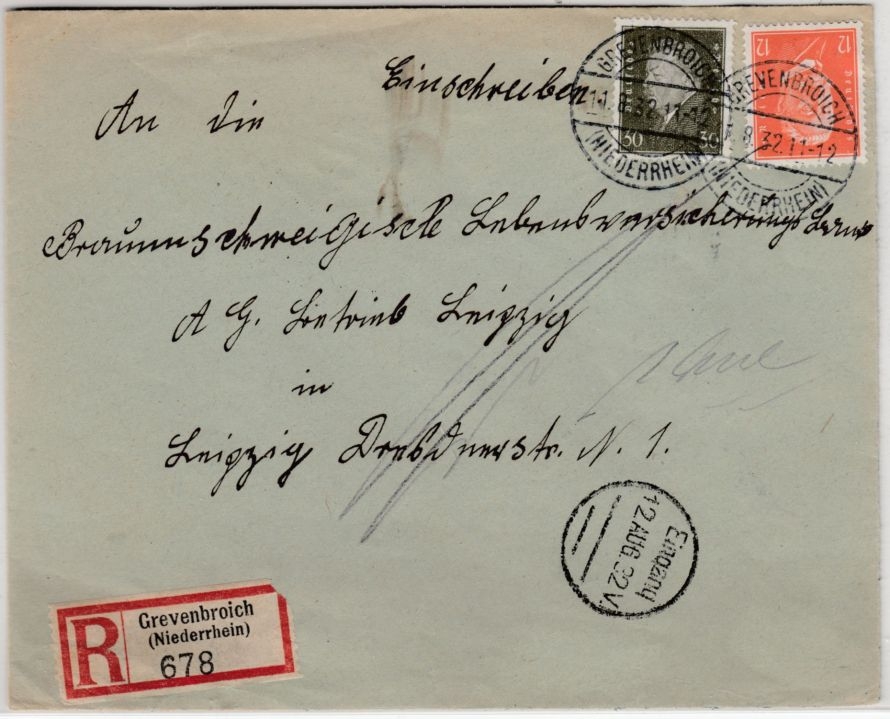 Einschreiben
An die
Braunschweigische Lebensversicherungs
A G. Betrieb Leipzig
in
Leipzig Dresdnerstr. N. 1.
30 30
12 12
GREVENBROICH
11.8.32.11-12
(NIEDERRHEIN)
GREVENBROICH
8.32.11-12
(NIEDERRHEIN)
Eingang
12 AUG. 32 V.
R
Grevenbroich
(Niederrhein)
678